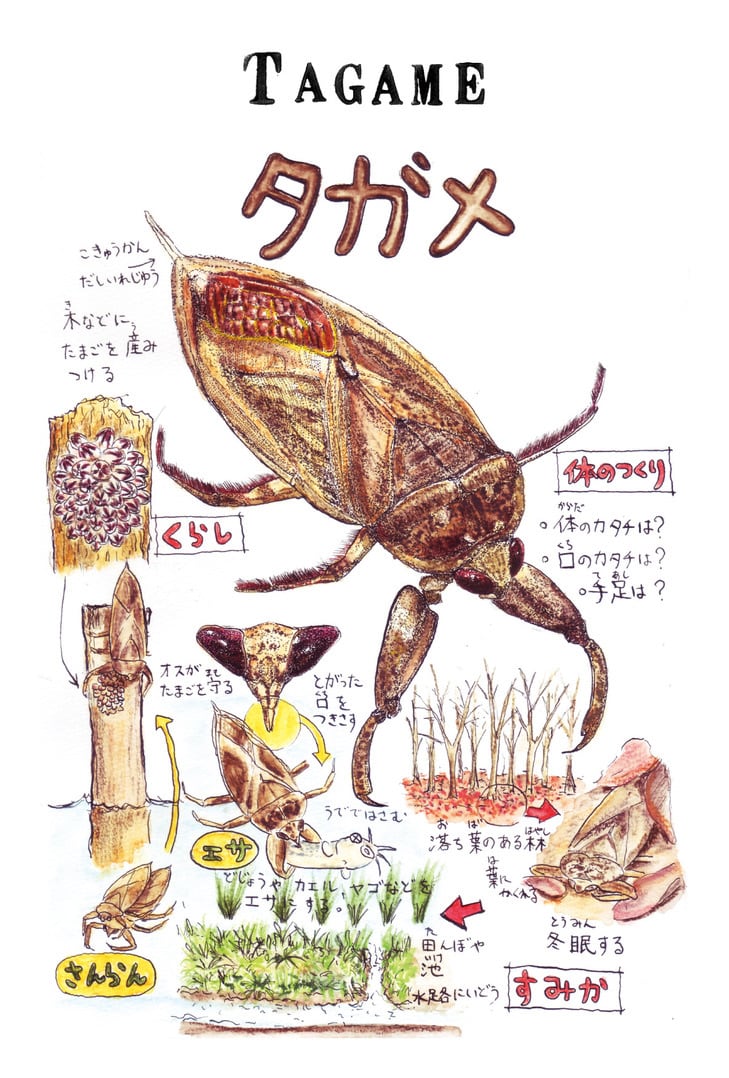 TAGAME
タガメ
こきゅうかん
だしいれじゆう
木などに
き
たまごを産み
う
つける
くらし
体のつくり
からだ
○体のカタチは?
くち
○口のカタチは?
て あし
○手足は?
オスが
たまごを守る
まも
とがった
口を
つきさす
うでではさむ
エサ
どじょうや カエル、ヤゴなどを
エサにする。
さんらん
お ば はやし
落ち葉のある林
は
葉に
かくれる
とうみん
冬眠する
た
田んぼや
いけ
池
水路にいどう
すみか